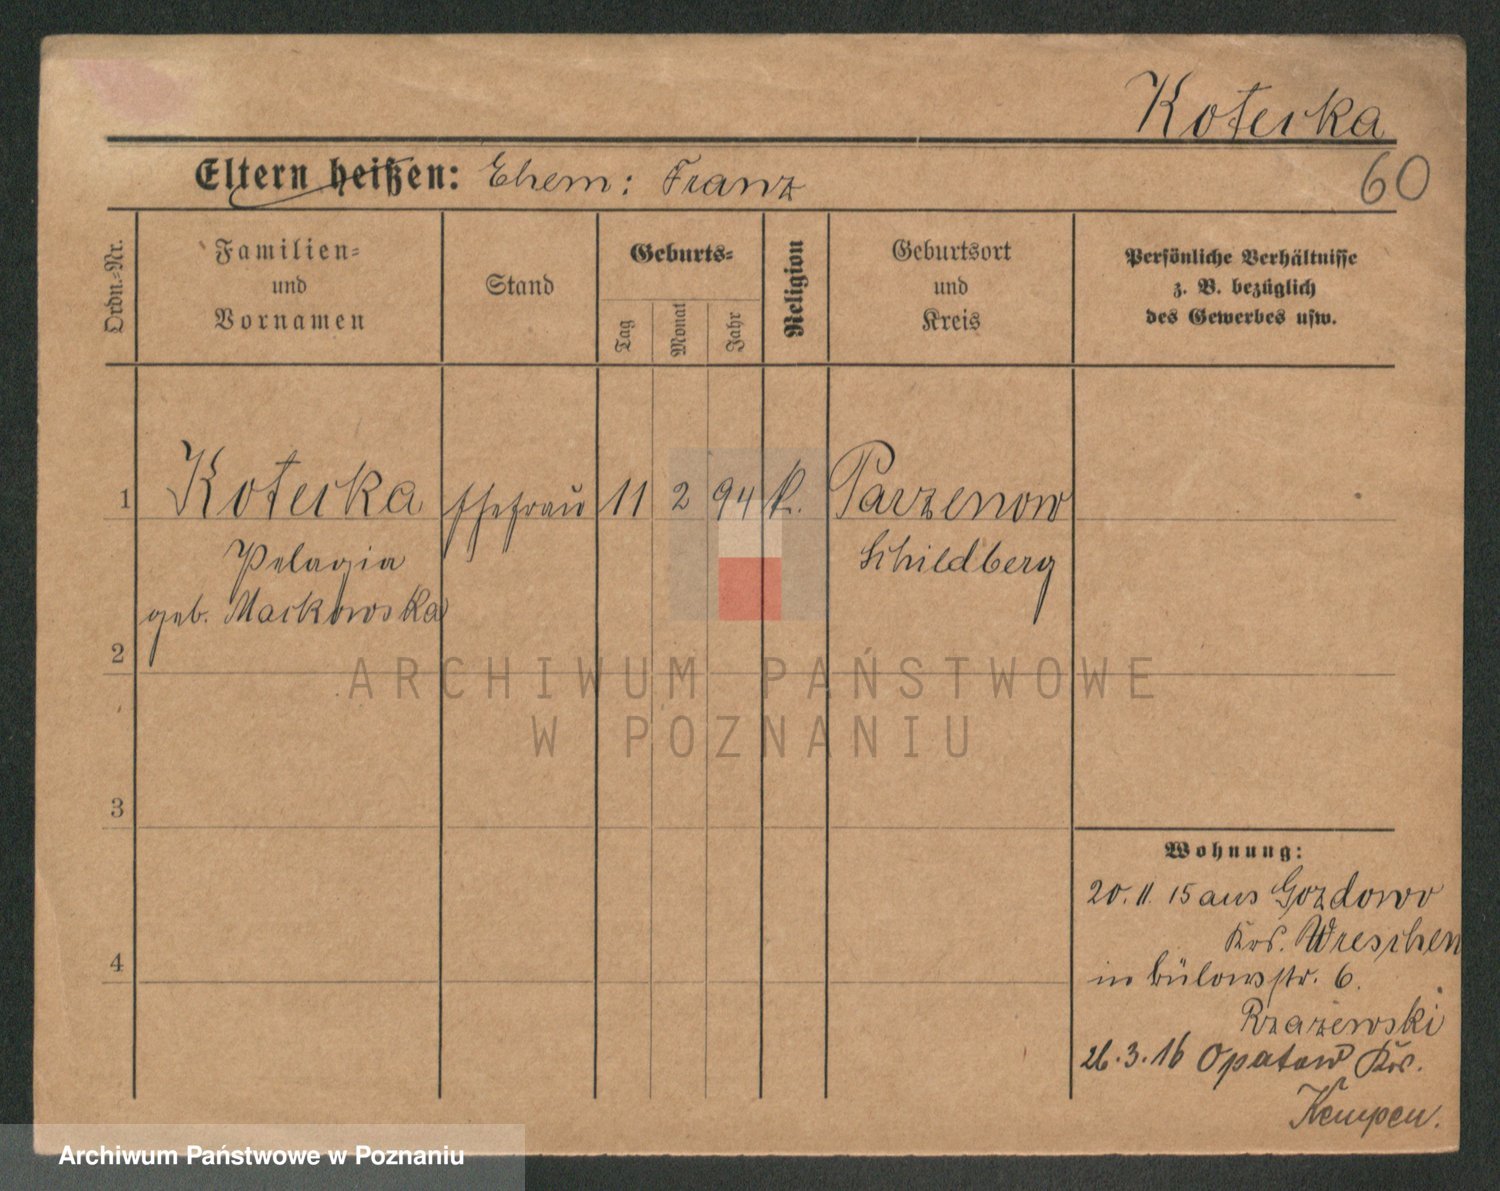 Kotecka
Eltern heißen: Ehem: Franz
60
Ordn.-Nr.
Familien-
und
Vornamen
Stand
Geburts-
Tag
Monat
Jahr
Religion
Geburtsort
und
Kreis
Persönliche Verhältnisse
z. B. bezüglich
des Gewerbes usw.
1 Kotecka Ehefrau 11 2 94 k. Parzenow
Pelagia Schildberg
geb. Mackowska
2
3
4
Wohnung:
20. 11. 15 aus Gozdowo
Krs. Wreschen
in Bülowstr. 6.
Rzazewski
26.3.16 Opatow Krs.
Kempen.
ARCHIWUM PAŃSTWOWE
W POZNANIU
Archiwum Państwowe w Poznaniu